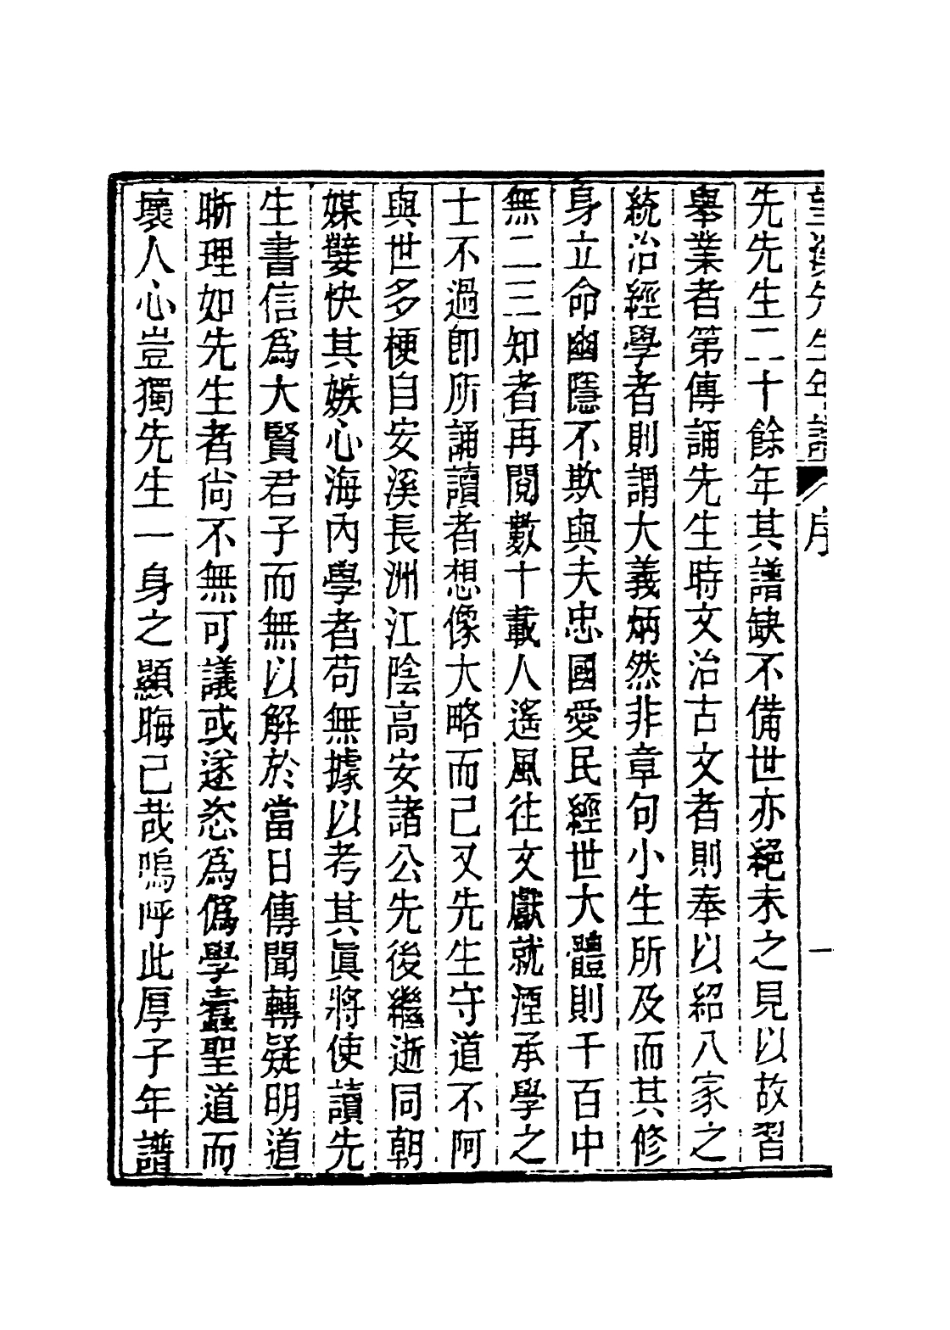 望溪先生年譜 序 一
先先生二十餘年其譜缺不備世亦絕未之見以故習
舉業者第傳誦先生時文治古文者則奉以紹八家之
統治經學者則謂大義炳然非章句小生所及而其修
身立命幽隱不欺與夫忠國愛民經世大體則千百中
無二三知者再閱數十載人遙風往文獻就湮承學之
士不過卽所誦讀者想像大略而己又先生守道不阿
與世多梗自安溪長洲江陰高安諸公先後繼逝同朝
媒糱快其嫉心海內學者苟無據以考其眞將使讀先
生書信爲大賢君子而無以解於當日傳聞轉疑明道
晰理如先生者尙不無可議或遂恣爲僞學蠹聖道而
壞人心豈獨先生一身之顯晦己哉嗚呼此厚子年譜